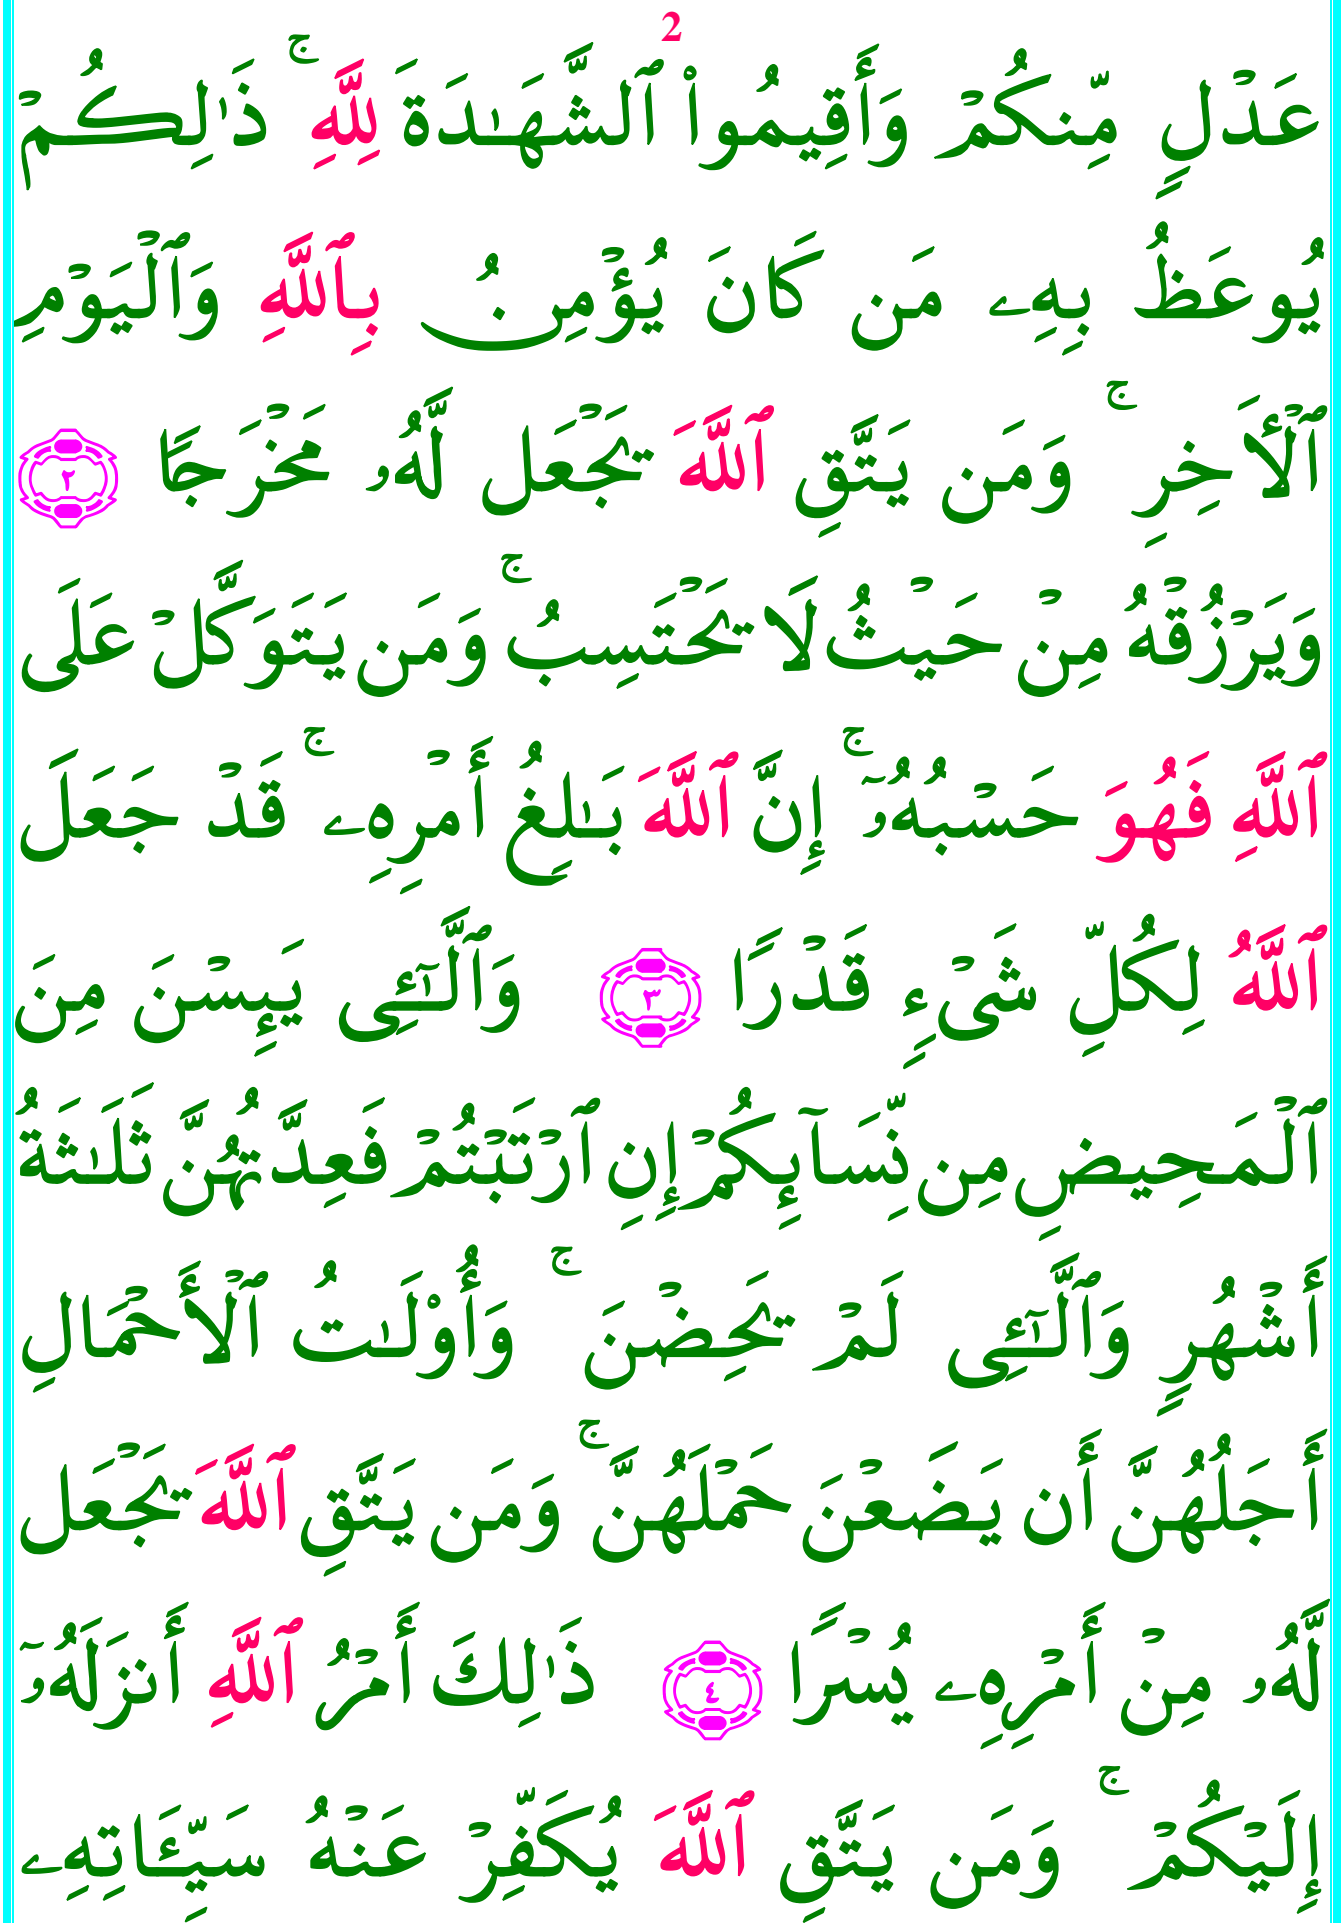 2
عَدْلٍ مِّنكُمْ وَأَقِيمُوا۟ ٱلشَّهَـٰدَةَ لِلَّهِ ۚ ذَٰلِكُمْ
يُوعَظُ بِهِۦ مَن كَانَ يُؤْمِنُ بِٱللَّهِ وَٱلْيَوْمِ
ٱلْـَٔاخِرِ ۚ وَمَن يَتَّقِ ٱللَّهَ يَجْعَل لَّهُۥ مَخْرَجًا ٢
وَيَرْزُقْهُ مِنْ حَيْثُ لَا يَحْتَسِبُ ۚ وَمَن يَتَوَكَّلْ عَلَى
ٱللَّهِ فَهُوَ حَسْبُهُۥٓ ۚ إِنَّ ٱللَّهَ بَـٰلِغُ أَمْرِهِۦ ۚ قَدْ جَعَلَ
ٱللَّهُ لِكُلِّ شَىْءٍ قَدْرًا ٣ وَٱلَّـٰٓـِٔى يَئِسْنَ مِنَ
ٱلْمَحِيضِ مِن نِّسَآئِكُمْ إِنِ ٱرْتَبْتُمْ فَعِدَّتُهُنَّ ثَلَـٰثَةُ
أَشْهُرٍ وَٱلَّـٰٓـِٔى لَمْ يَحِضْنَ ۚ وَأُو۟لَـٰتُ ٱلْأَحْمَالِ
أَجَلُهُنَّ أَن يَضَعْنَ حَمْلَهُنَّ ۚ وَمَن يَتَّقِ ٱللَّهَ يَجْعَل
لَّهُۥ مِنْ أَمْرِهِۦ يُسْرًا ٤ ذَٰلِكَ أَمْرُ ٱللَّهِ أَنزَلَهُۥٓ
إِلَيْكُمْ ۚ وَمَن يَتَّقِ ٱللَّهَ يُكَفِّرْ عَنْهُ سَيِّـَٔاتِهِۦ